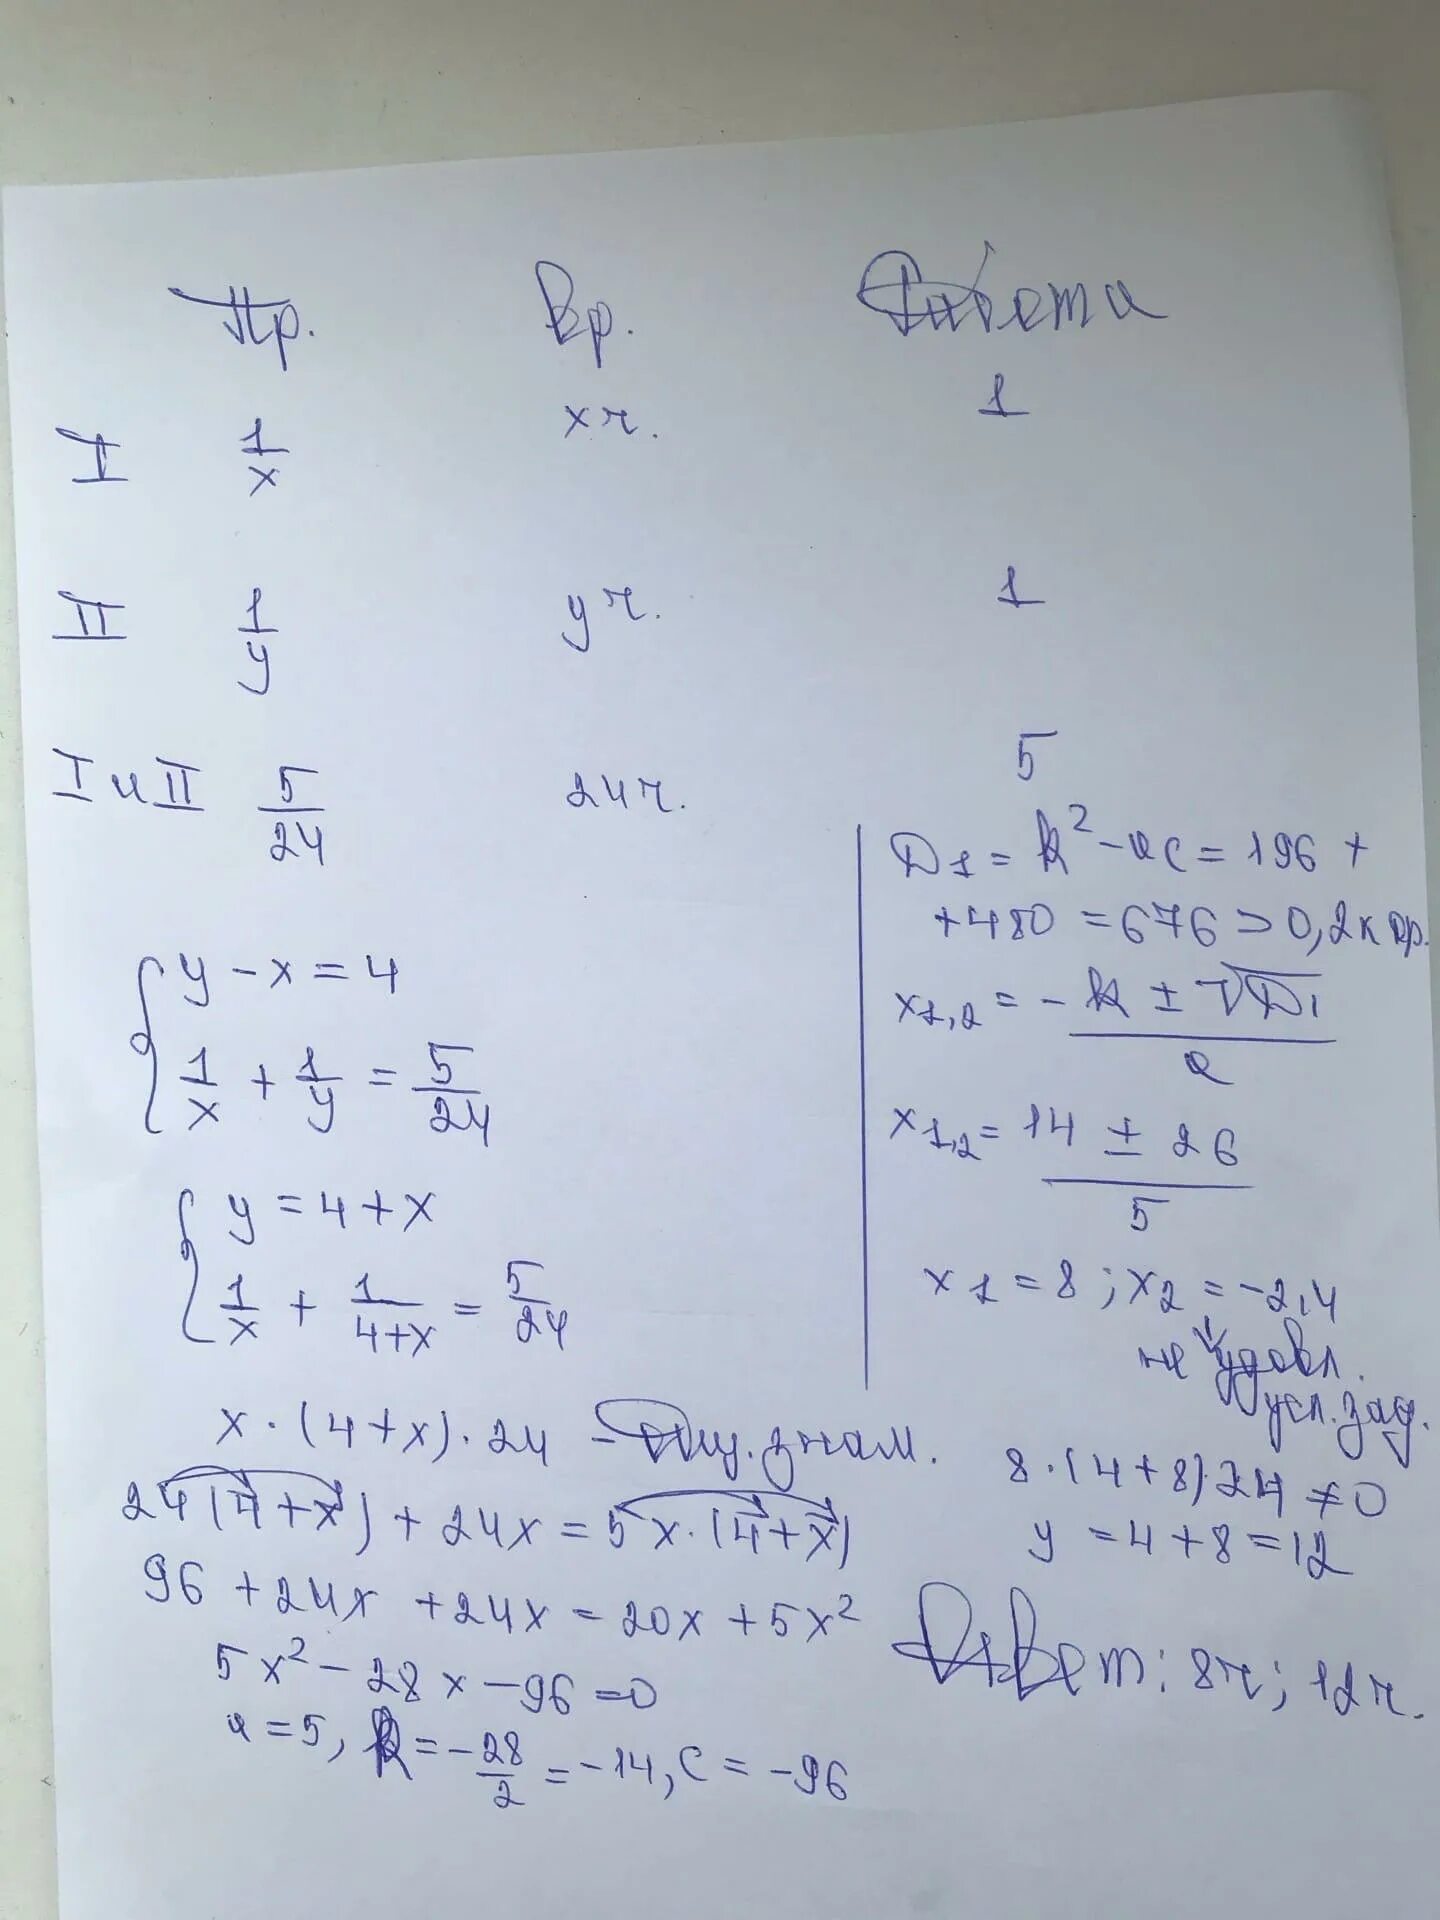 Пр. Вр. Работа
I 1/x x ч. 1
II 1/y y ч. 1
I и II 5/24 24 ч. 5
y - x = 4
1/x + 1/y = 5/24
y = 4 + x
1/x + 1/(4+x) = 5/24
x · (4 + x) · 24 - общ. знам.
24(4 + x) + 24x = 5x · (4 + x)
96 + 24x + 24x = 20x + 5x²
5x² - 28x - 96 = 0
a = 5, k = -28/2 = -14, c = -96
D₁ = k² - ac = 196 +
+ 480 = 676 > 0, 2 к ор.
x₁,₂ = (-k ± √D₁)/a
x₁,₂ = (14 ± 26)/5
x₁ = 8 ; x₂ = -2,4
не удовл.
усл. зад.
8 · (4 + 8) · 24 ≠ 0
y = 4 + 8 = 12
Ответ: 8 ч; 12 ч.